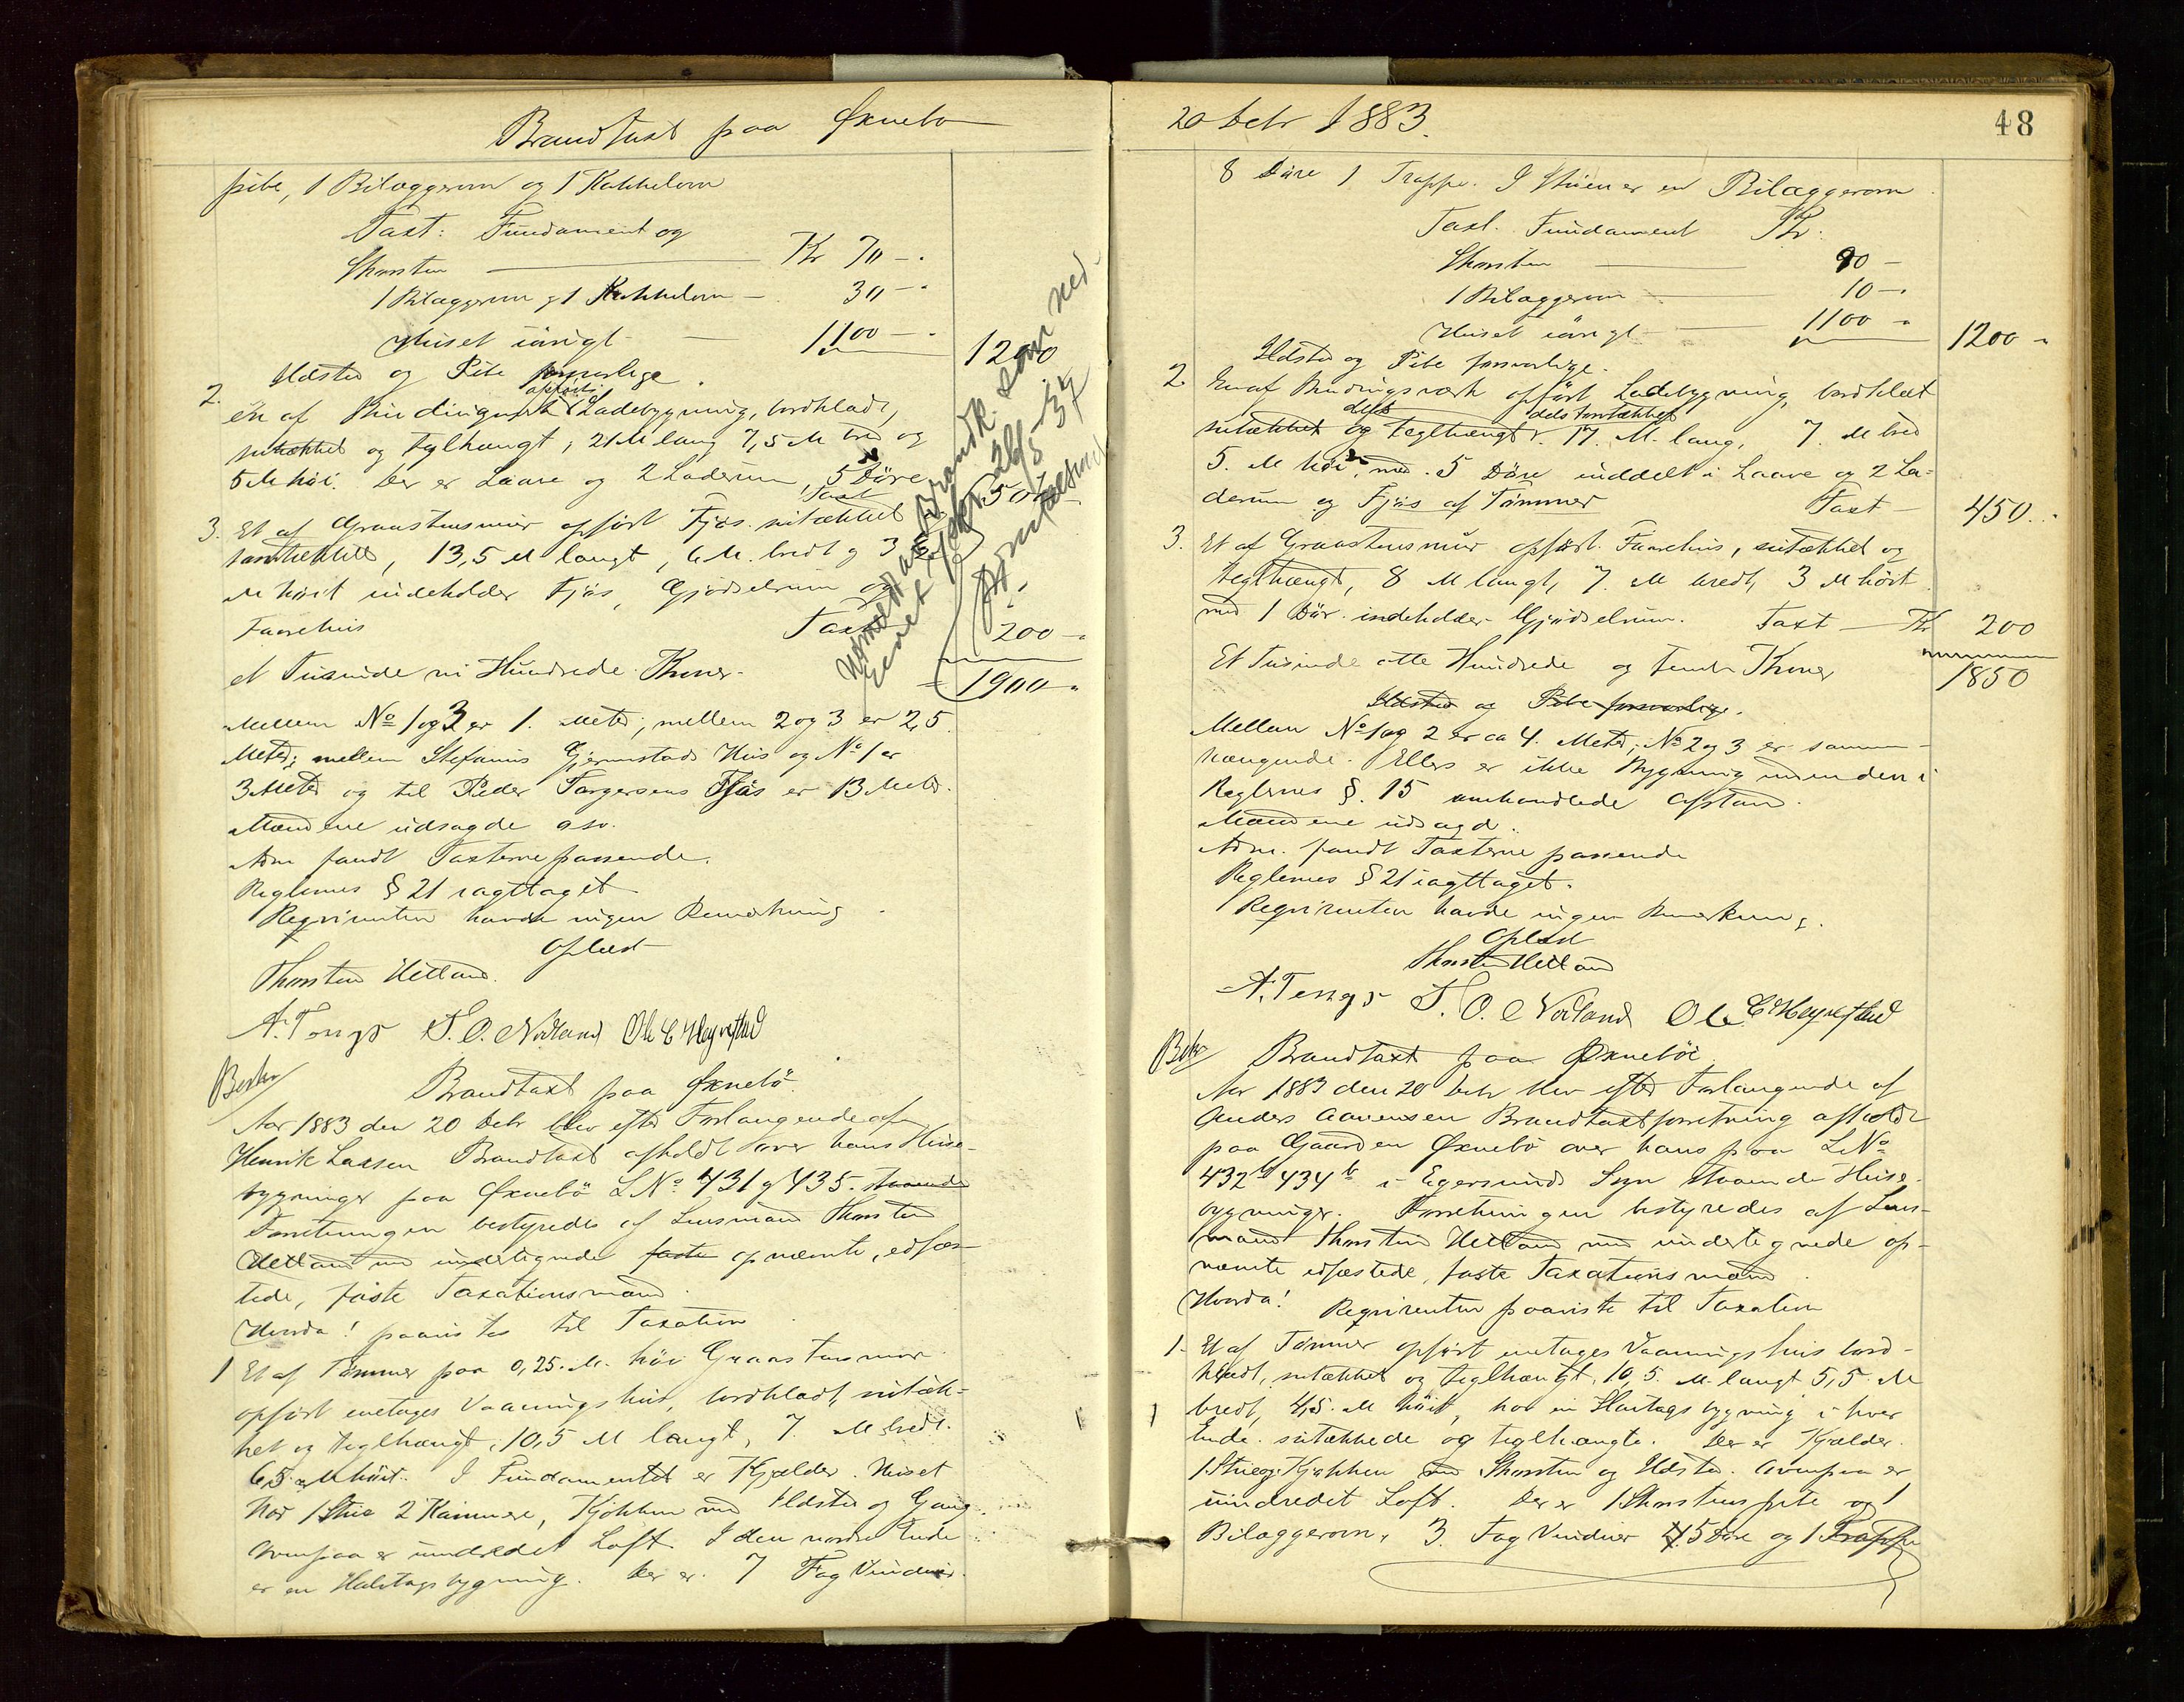 Brandtaxt paa Øxnebø
pibe, 1 Bilæggerovn og 1 Kakkelovn
Taxt: Fundament og
Skorsten Kr 70 -
1 Bilæggerovn og 1 Kakkelovn - 30 -
Huset iøvrigt - 1100 - 1200
Ildsted og Pibe forsvarlige.
2. én af Bindingsværk opført Ladebygning, bordklædt,
nitækket og teglhængt, 21 M lang 7,5 M bred og
5 M høi. Der er Laave og 2 Laderum, 5 Døre
Taxt 500 -
3. Et af Graastensmur opført Fjøs nitækket
torvtækket, 13,5 M langt, 6 M. bredt og 3
M høit indeholder Fjøs, Gjødselrum og
Faarehus Taxt 200 -
et Tusinde ni Hundrede Kroner - 1900 -
Mellem No 1 og 3 er 1. Meter; mellem 2 og 3 er 2,5
Meter; mellem Stefanus Gjermstads Hus og No 1 er
3 Meter og til Peder Torgersens Fjøs er 13 Meter.
Mændene udsagde
Adm fandt Taxterne passende.
Reglernes § 21 iagttaget
Reqvirenten havde ingen Bemerkning.
Oplæst
Thorsten Hetland.
A. Tengs S. O. Nodland Ole E Høgnestad
Beskr
Brandtaxt paa Øxnebø
Aar 1883 den 20 Debr blev efter Forlangende af
Henrik Larsen Brandtaxt afholdt over hans Huse-
bygninger paa Øxnebø LNo 431 og 435. staaende
Forretningen bestyredes af Lensmand Thorsten
Hetland med undertegnede faste opnævnte, edfæs-
tede, faste Taxationsmænd.
Hvorda! paavistes til Taxation
1 Et af Tømmer paa 0,25. M. høi Graastensmur
opført enetages Vaaningshus, bordklædt, nitæk-
ket og teglhængt, 10,5 M langt, 7 M bredt.
6,5 M høit. I Fundamentet er Kjælder. Huset
har 1 Stue 2 Kammere, Kjøkken med Ildsted og Gang.
Ovenpaa er uindredet Loft. I den nordre Ende
er en Halvtagsbygning. Der er 7 Fag Vinduer
20 Debr 1883.
48
8 Døre 1 Trappe. I Stuen er en Bilæggerovn
Taxt. Fundament Kr.
Skorsten 90 -
1 Bilæggerovn 10 -
Huset iøvrigt 1100 - 1200 -
Ildsted og Pibe forsvarlige.
2. En af Bindingsværk opført Ladebygning, bordklæt
dels dels torvtækket
nitækket og teglhængt. 17. M. lang, 7. M bred
5. M høi, med 5 Døre inddelt i Laave og 2 La-
derum og Fjøs af Tømmer Taxt - 450.
3. Et af Graastensmur opført Faarehus, nitækket og
teglhængt, 8 M langt, 7. M bredt, 3 M høit
med 1 Dør. indeholder Gjødselrum. Taxt - Kr 200
Et Tusinde otte Hundrede og femti Kroner 1850
Ildsted og Pibe forsvarlige.
Mellem No 1 og 2 er ca 4. Meter; No 2 og 3 er sammen-
hængende. Ellers er ikke Bygning inden den i
Reglernes §. 15 omhandlede Afstand.
Mændene udsagd.
Adm. fandt Taxterne passende
Reglernes § 21 iagttaget.
Reqvirenten havde ingen Bemerkning.
Oplæst
Thorsten Hetland
A. Tengs S. O. Nodland Ole E Høgnestad
Bekr
Brandtaxt paa Øxnebøe
Aar 1883 den 20 Debr blev efter Forlangende af
Anders Aanensen Brandtaxtforretning afholdt
paa Gaarden Øxnebø over hans paa LNo
432 b 434 b i Egersunds Sogn staaende Huse-
bygninger. Forretningen bestyredes af Lens-
mand Thorsten Hetland med undertegnede op-
nævnte edfæstede, faste Taxationsmænd.
Hvorda! Reqvirenten paaviste til Taxation
1. Et af Tømmer opført eenetages Vaaningshus bord-
klædt, nitækket og teglhængt, 10,5. M. langt 5,5. M
bredt, 4,5. M høit, har en Halvtagsbygning i hver
Ende. nitækkede og teglhængte. Der er Kjælder.
1 Stue og Kjøkken med Skorsten og Ildsted. Ovenpaa er
uindredet Loft. Der er 1 Skorstenspibe og 1
Bilæggerovn, 3. Fag Vinduer 5 Døre og 1 Trappe